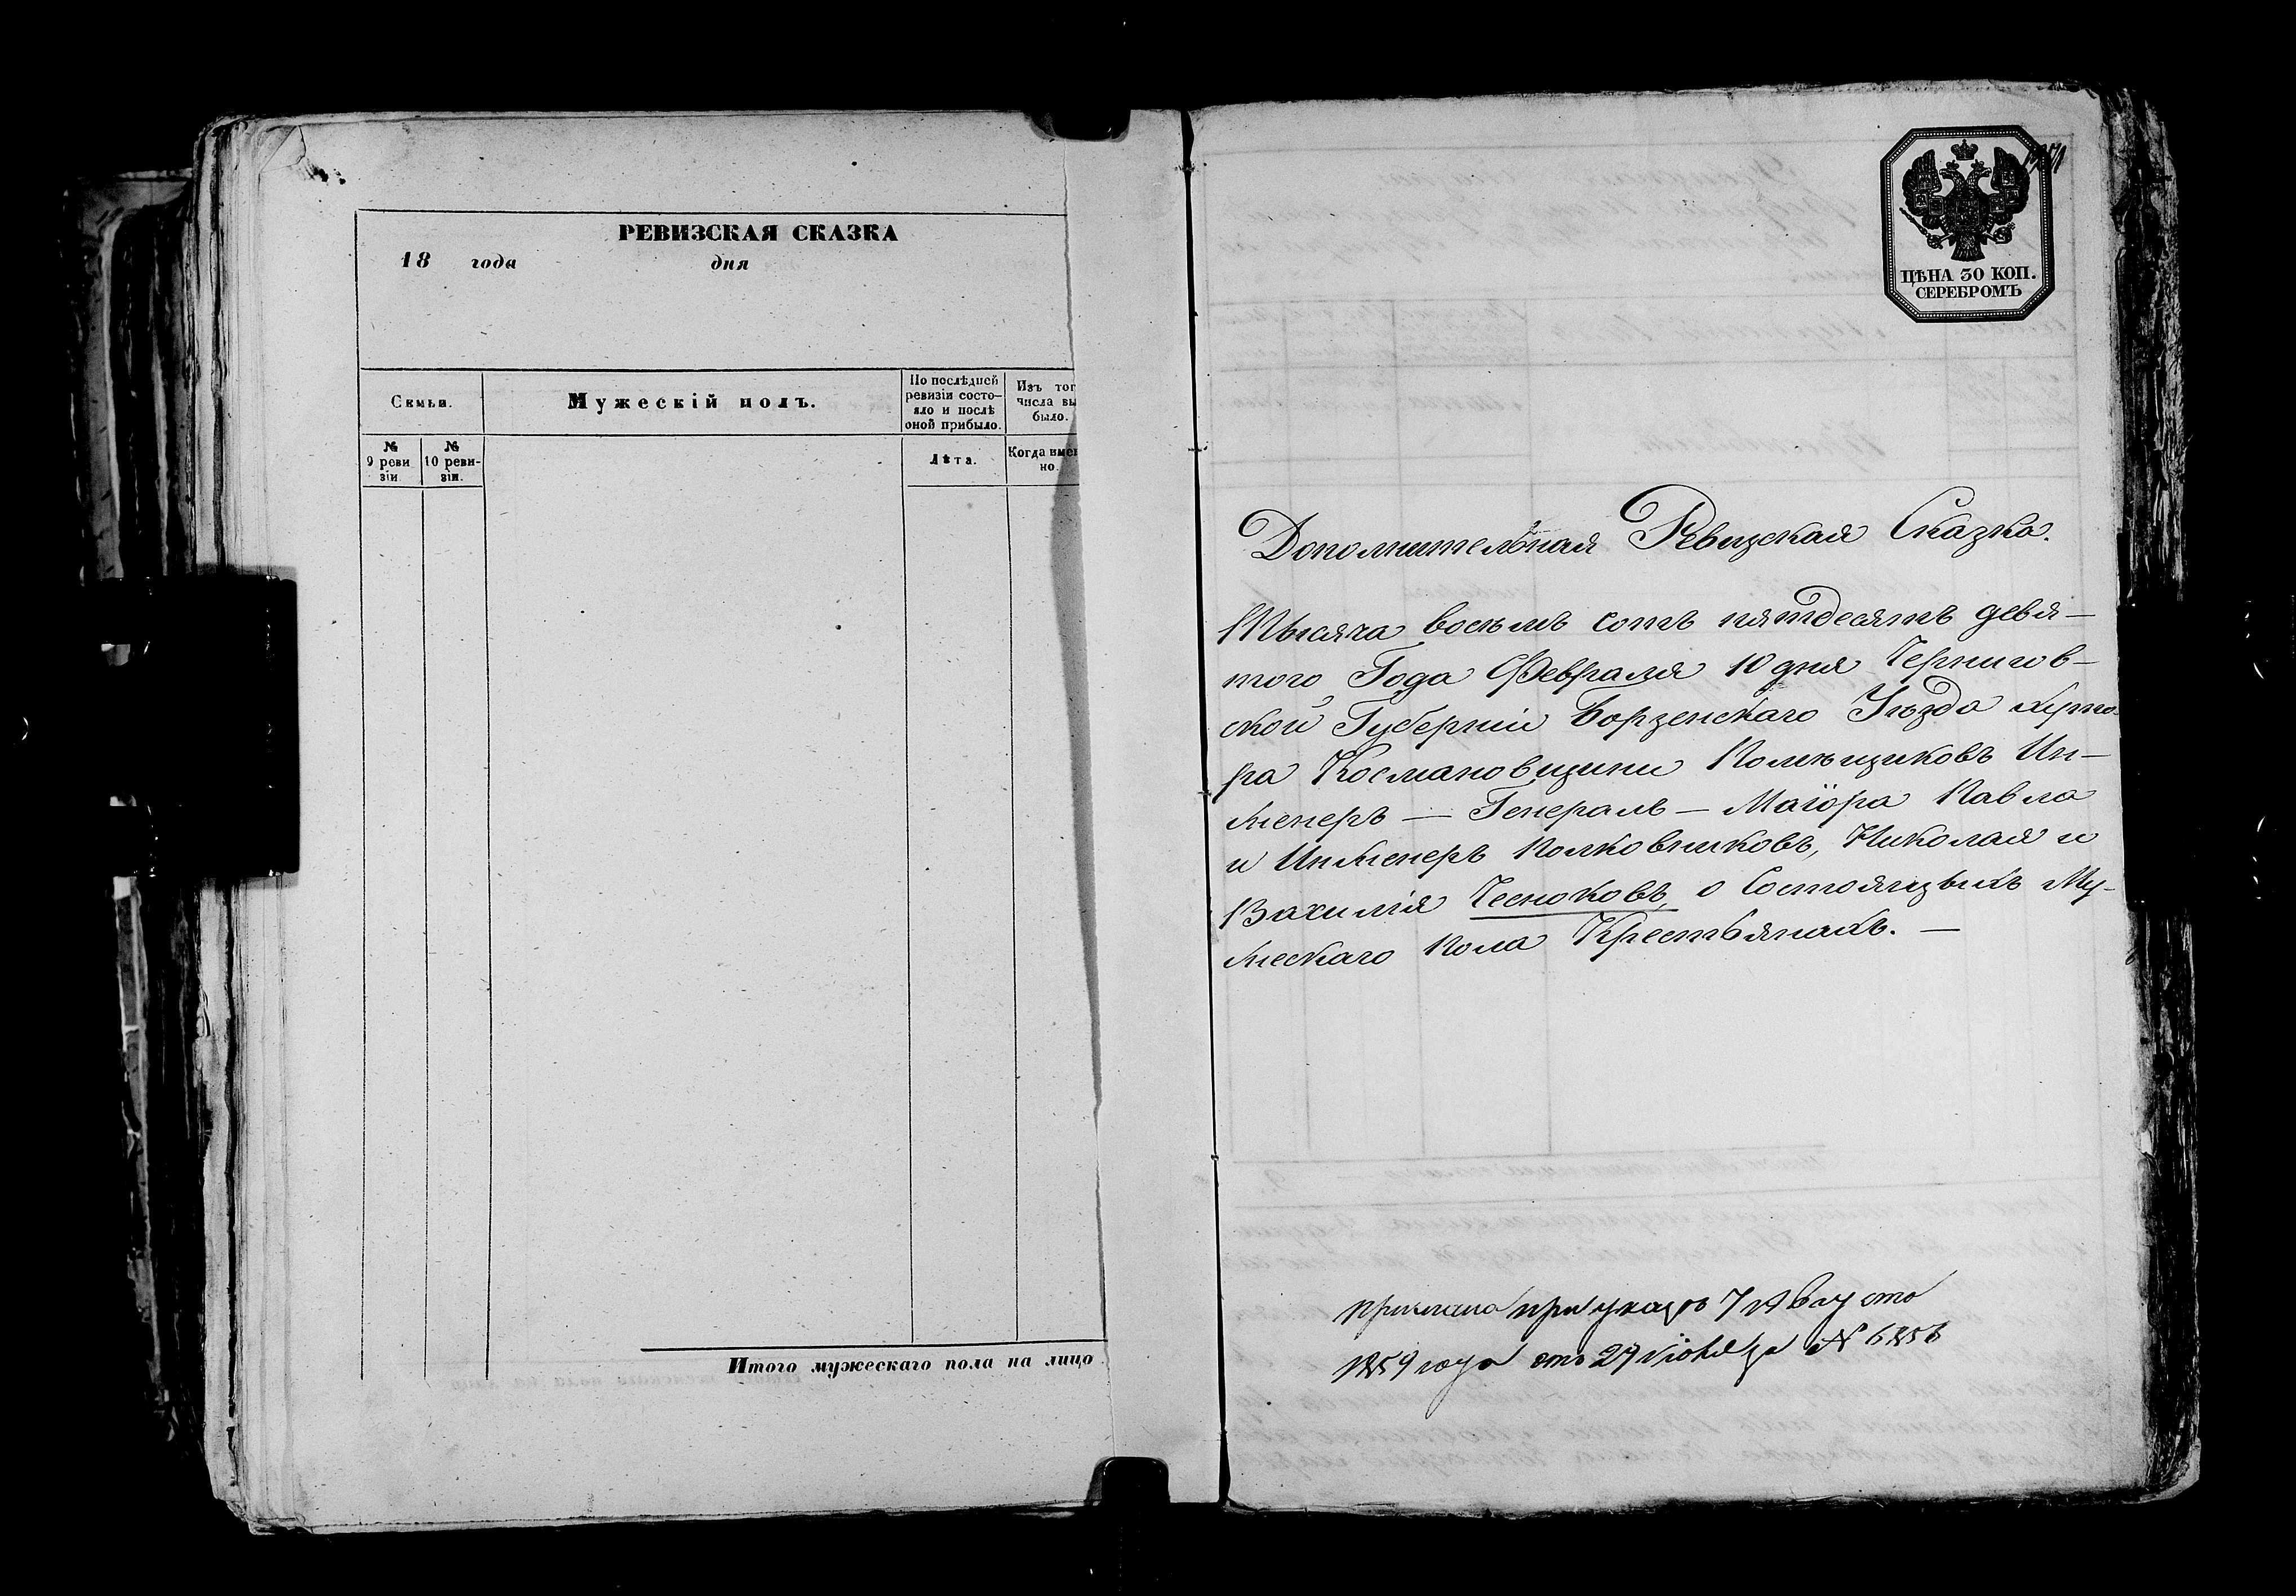 РЕВИЗСКАЯ СКАЗКА
18 года дня
Семьи.
Мужескій полъ.
По послѣдней
ревизіи состо-
яло и послѣ
оной прибыло.
Изъ тог
числа вы
было.
№
9 реви
зіи.
№
10 реви-
зіи.
Лѣта.
Когда имен
но.
Итого мужескаго пола на лицо
ЦѢНА 30 КОП.
СЕРЕБРОМЪ
Дополнительная Ревизская Сказка.
Тысяча восемь сотъ пятдесятъ девя-
того Года Февраля 10 дня Чернигов-
ской Губерніи Борзенскаго Уѣзда хуто-
ра Космановщини Помѣщиковъ Ин-
женеръ - Генералъ - Маіора Павла
и Инженеръ Полковниковъ, Николая и
Василія Чесноковъ, о Состоящихъ Му-
жескаго Пола Крестьянахъ. -
прислана при указѣ 7 Августа
1859 года отъ 27 іюля за №